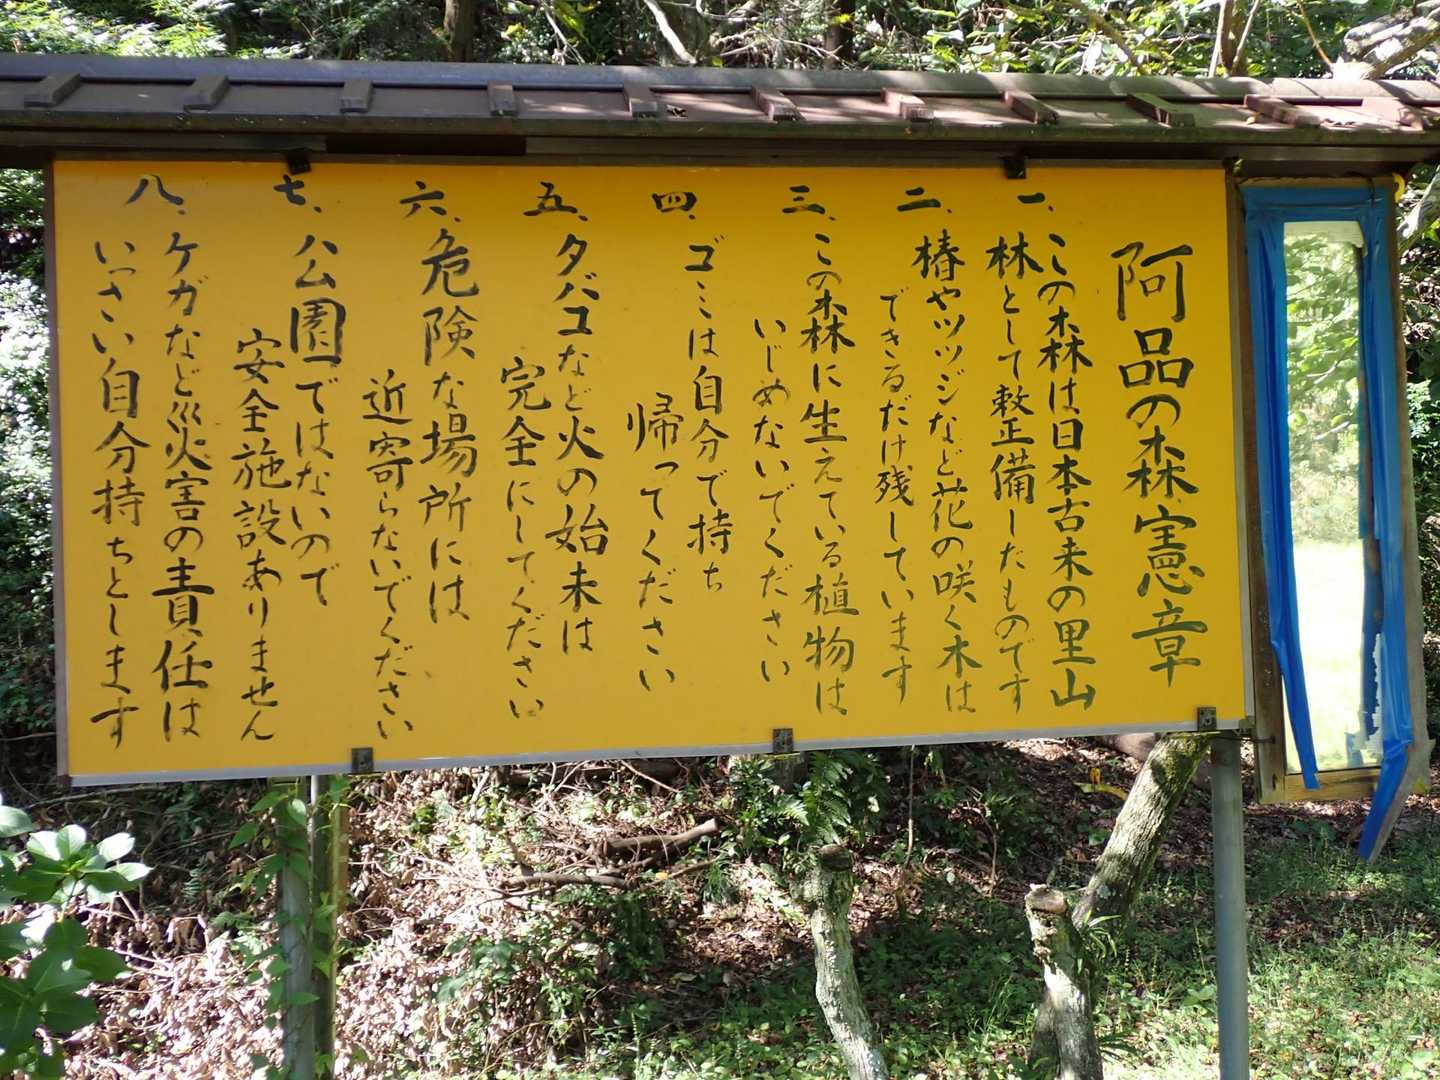 阿品の森憲章
一、この森は日本古来の里山
林として整備したものです
二、椿やツツジなど花の咲く木は
できるだけ残しています
三、この森に生えている植物は
いじめないでください
四、ゴミは自分で持ち
帰ってください
五、タバコなど火の始末は
完全にしてください
六、危険な場所には
近寄らないでください
七、公園ではないので
安全施設ありません
八、ケガなど災害の責任は
いっさい自分持ちとします